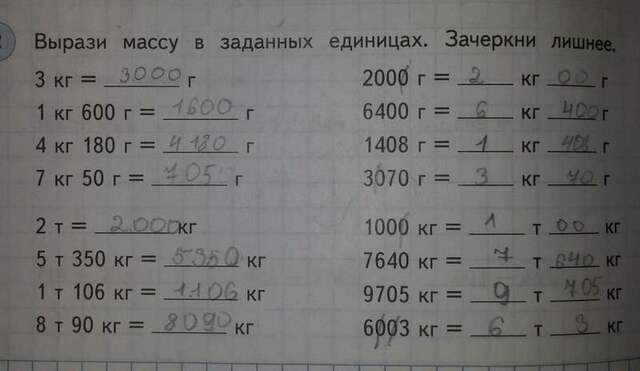 Вырази массу в заданных единицах. Зачеркни лишнее.
3 кг = 3000 г
1 кг 600 г = 1600 г
4 кг 180 г = 4180 г
7 кг 50 г = 705 г
2 т = 2000 кг
5 т 350 кг = 5350 кг
1 т 106 кг = 1106 кг
8 т 90 кг = 8090 кг
2000 г = 2 кг 00 г
6400 г = 6 кг 400 г
1408 г = 1 кг 408 г
3070 г = 3 кг 70 г
1000 кг = 1 т 00 кг
7640 кг = 7 т 640 кг
9705 кг = 9 т 705 кг
6003 кг = 6 т 3 кг